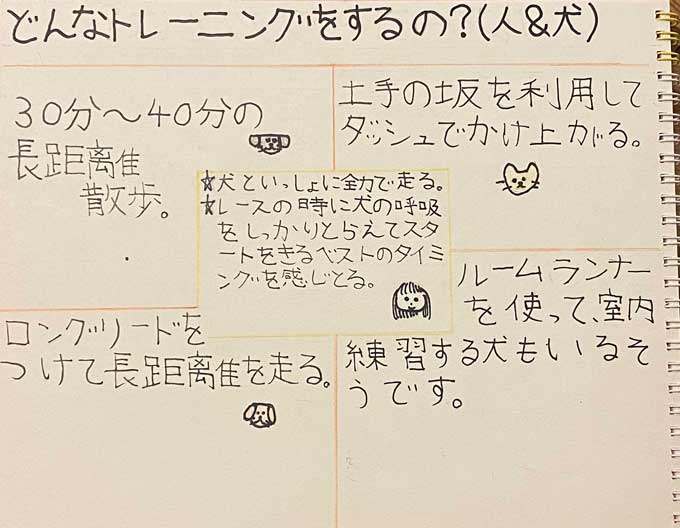 どんなトレーニングをするの?(人&犬)
30分〜40分の
長距離隹
散歩。
土手の坂を利用して
ダッシュでかけ上がる。
☆犬といっしょに全力で走る。
☆レースの時に犬の呼吸
をしっかりとらえてスタ
ートをきるベストのタイミ
ングを感じとる。
ロングリードを
つけて長距離隹を走る。
ルームランナー
を使って、室内
練習する犬もいるそ
うです。